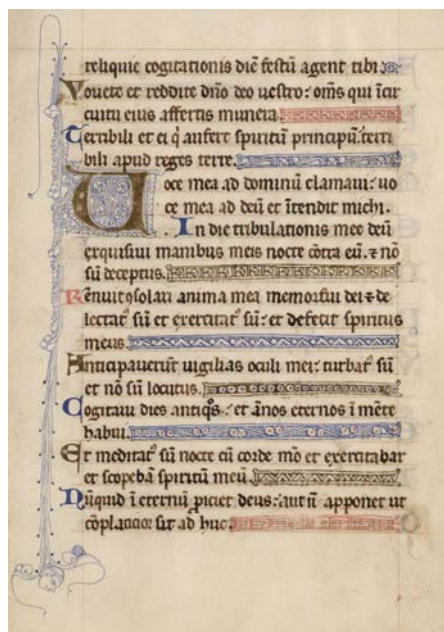 reliquie cogitationis diē festū agent tibi
Vouete et reddite dño deo uestro: oms̄ qui ī cir
cuitu eius affertis munera.
Terribili et ei q̇ aufert spiritū principū: terri
bili apud reges terre.
Uoce mea ad dominū clamaui: uo
ce mea ad deū et ītendit michi.
In die tribulationis mee deū
exquisiui manibus meis nocte cōtra eū. ⁊ nō
sū deceptus.
Renuit ꝯsolari anima mea memor fui dei ⁊ de
lectatꝰ sū et exercitatꝰ sū: et defecit spiritus
meus.
Anticipauerūt uigilias oculi mei: turbatꝰ sū
et nō sū locutus.
Cogitaui dies antiq̄s: et ānos eternos ī mēte
habui.
Et meditatꝰ sū nocte cū corde mō et exercitabar
et scopebā spiritū meū.
Nūquid ī eternū ꝓiciet deus: aut ñ apponet ut
cōplacitior sit ad huc.